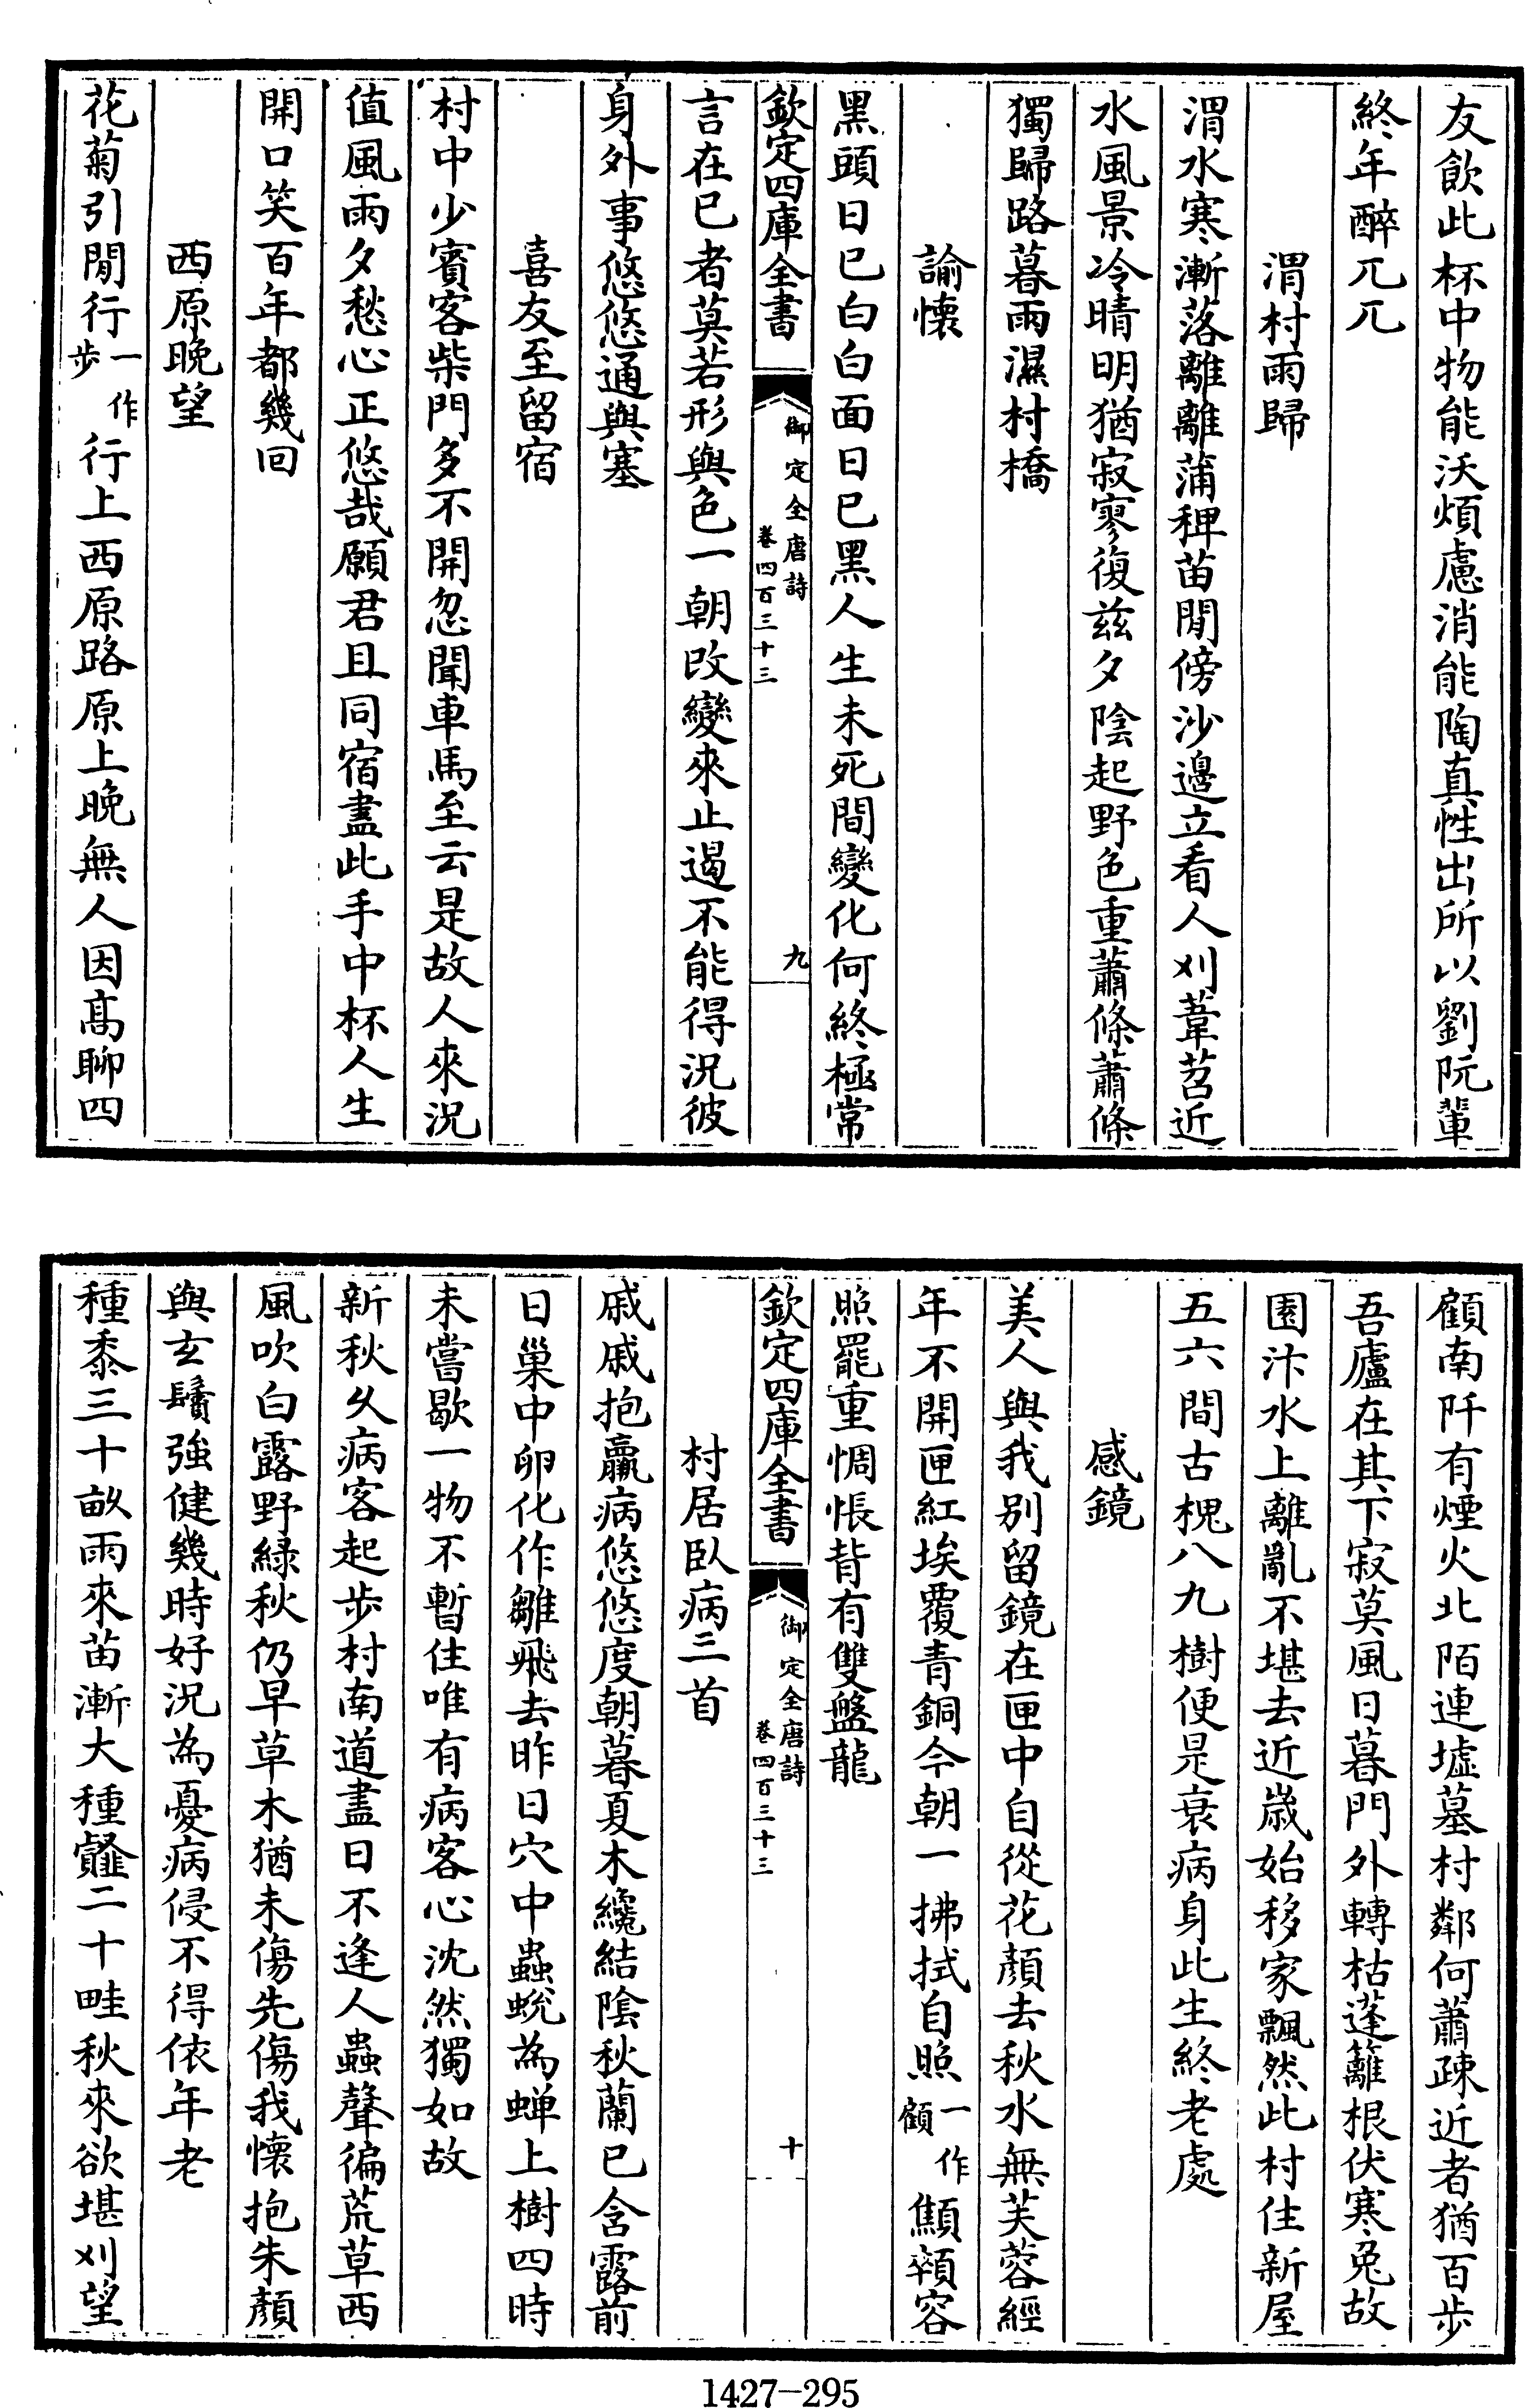 友飲此杯中物能沃煩慮消能陶真性出所以劉阮輩
終年醉兀兀
渭村雨歸
渭水寒漸落離離蒲稗苗閒傍沙邊立看人刈葦苕近
水風景冷晴明猶寂寥復兹夕陰起野色重蕭條蕭條
獨歸路暮雨濕村橋
諭懷
黑頭日已白白面日已黑人生未死間變化何終極常
欽定四庫全書
御定全唐詩
卷四百三十三
九
言在已者莫若形與色一朝改變來止遏不能得況彼
身外事悠悠通與塞
喜友至留宿
村中少賓客柴門多不開忽聞車馬至云是故人來況
值風雨夕愁心正悠哉願君且同宿盡此手中杯人生
開口笑百年都幾回
西原晚望
花菊引閒行一作步行上西原路原上晚無人因髙聊四
顧南阡有煙火北陌連墟墓村鄰何蕭疎近者猶百步
吾廬在其下寂莫風日暮門外轉枯蓬籬根伏寒兔故
園汴水上離亂不堪去近歳始移家飄然此村住新屋
五六間古槐八九樹便是衰病身此生終老處
感鏡
美人與我别留鏡在匣中自從花顔去秋水無芙蓉經
年不開匣紅埃覆青銅今朝一拂拭自照一作顧顦顇容
照罷重惆悵背有雙盤龍
欽定四庫全書
御定全唐詩
卷四百三十三
十
村居臥病三首
戚戚抱羸病悠悠度朝暮夏木纔結陰秋蘭已含露前
日巢中卵化作雛飛去昨日穴中蟲蜕為蟬上樹四時
未嘗歇一物不暫住唯有病客心沈然獨如故
新秋久病客起步村南道盡日不逢人蟲聲徧荒草西
風吹白露野緑秋仍早草木猶未傷先傷我懷抱朱顔
與玄鬢強健幾時好況為憂病侵不得依年老
種黍三十畝雨來苗漸大種韰二十畦秋來欲堪刈望
1427—295